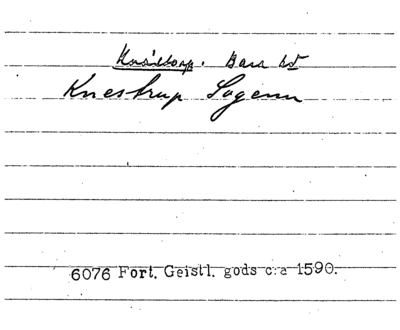 Knästorp. Bara hd
Knestrup Sogenn
6076 Fort. Geistl. gods c:a 1590.